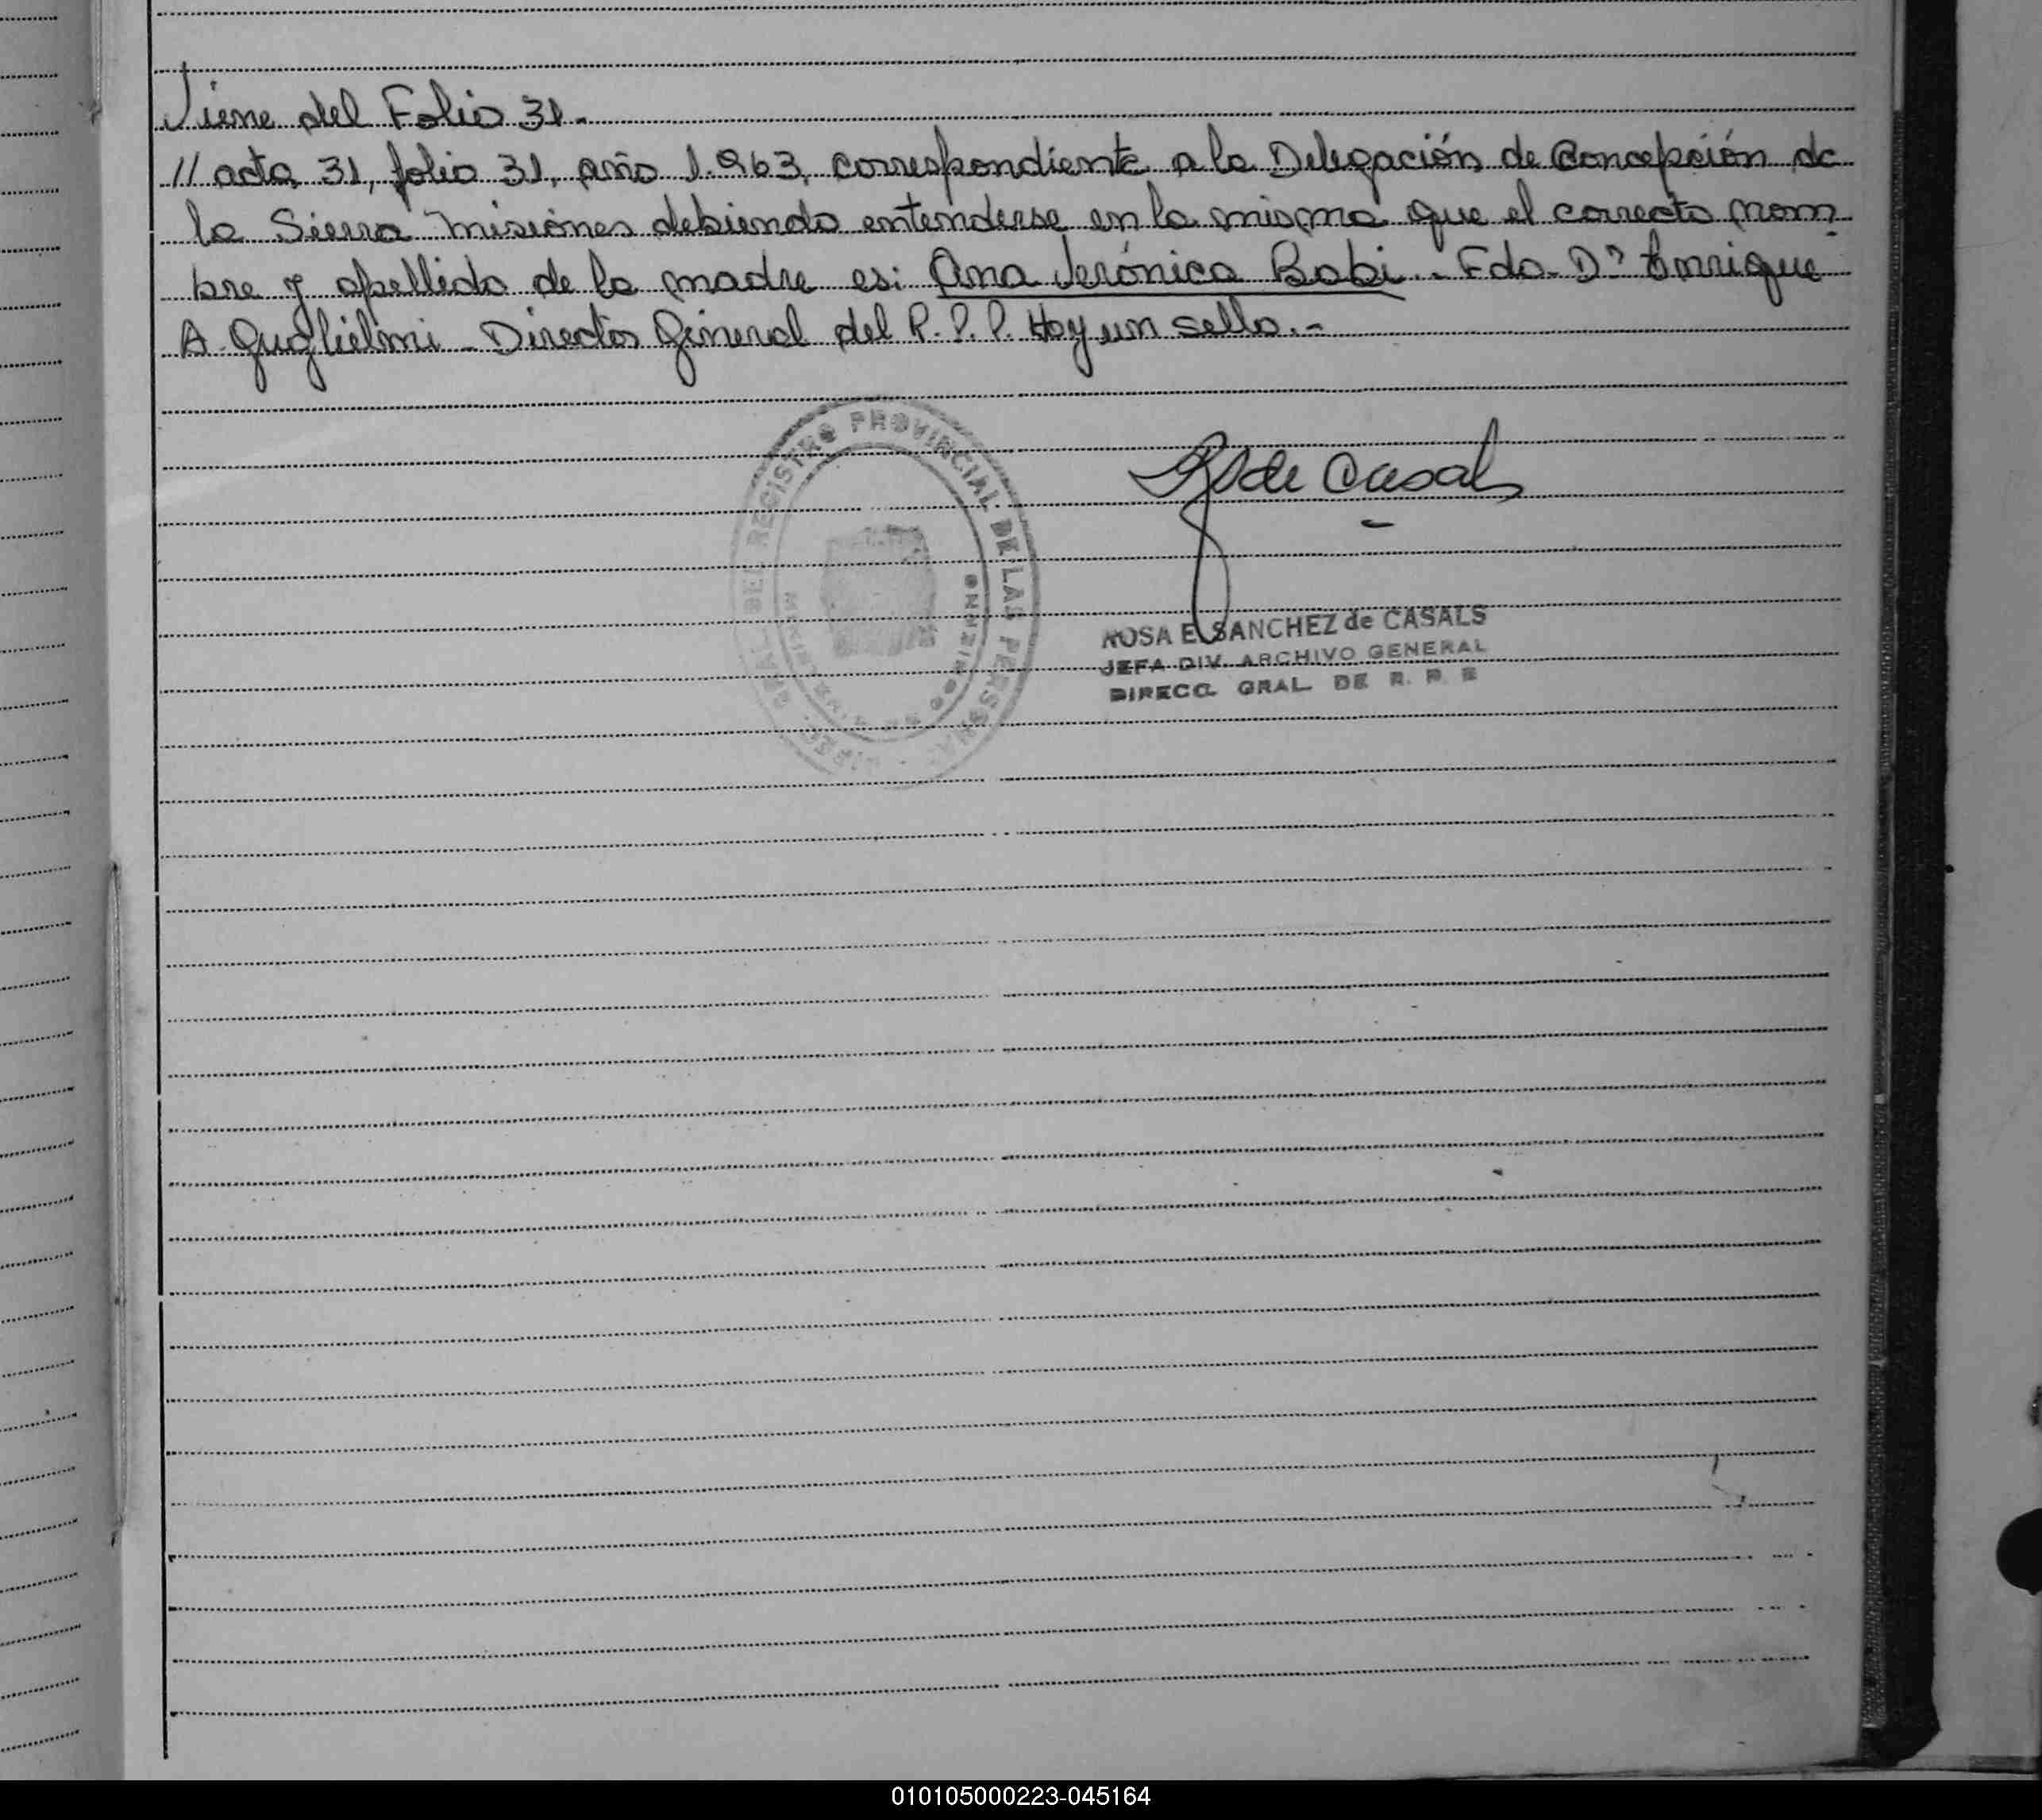 Viene del Folio 31.-
// acta 31, folio 31, año 1.963, correspondiente a la Delegación de Concepción de
la Sierra Misiones debiendo entenderse en la misma que el correcto nom
bre y apellido de la madre es: Ana Verónica Bobi.- Fdo- Dº Enrique
A. Guglielmi - Director General del R.P.P. Hay un sello.-
REGISTRO PROVINCIAL DE LAS PERSONAS
R S de Casals
ROSA E. SANCHEZ de CASALS
JEFA DIV. ARCHIVO GENERAL
DIRECC. GRAL. DE R. P. P.
010105000223-045164